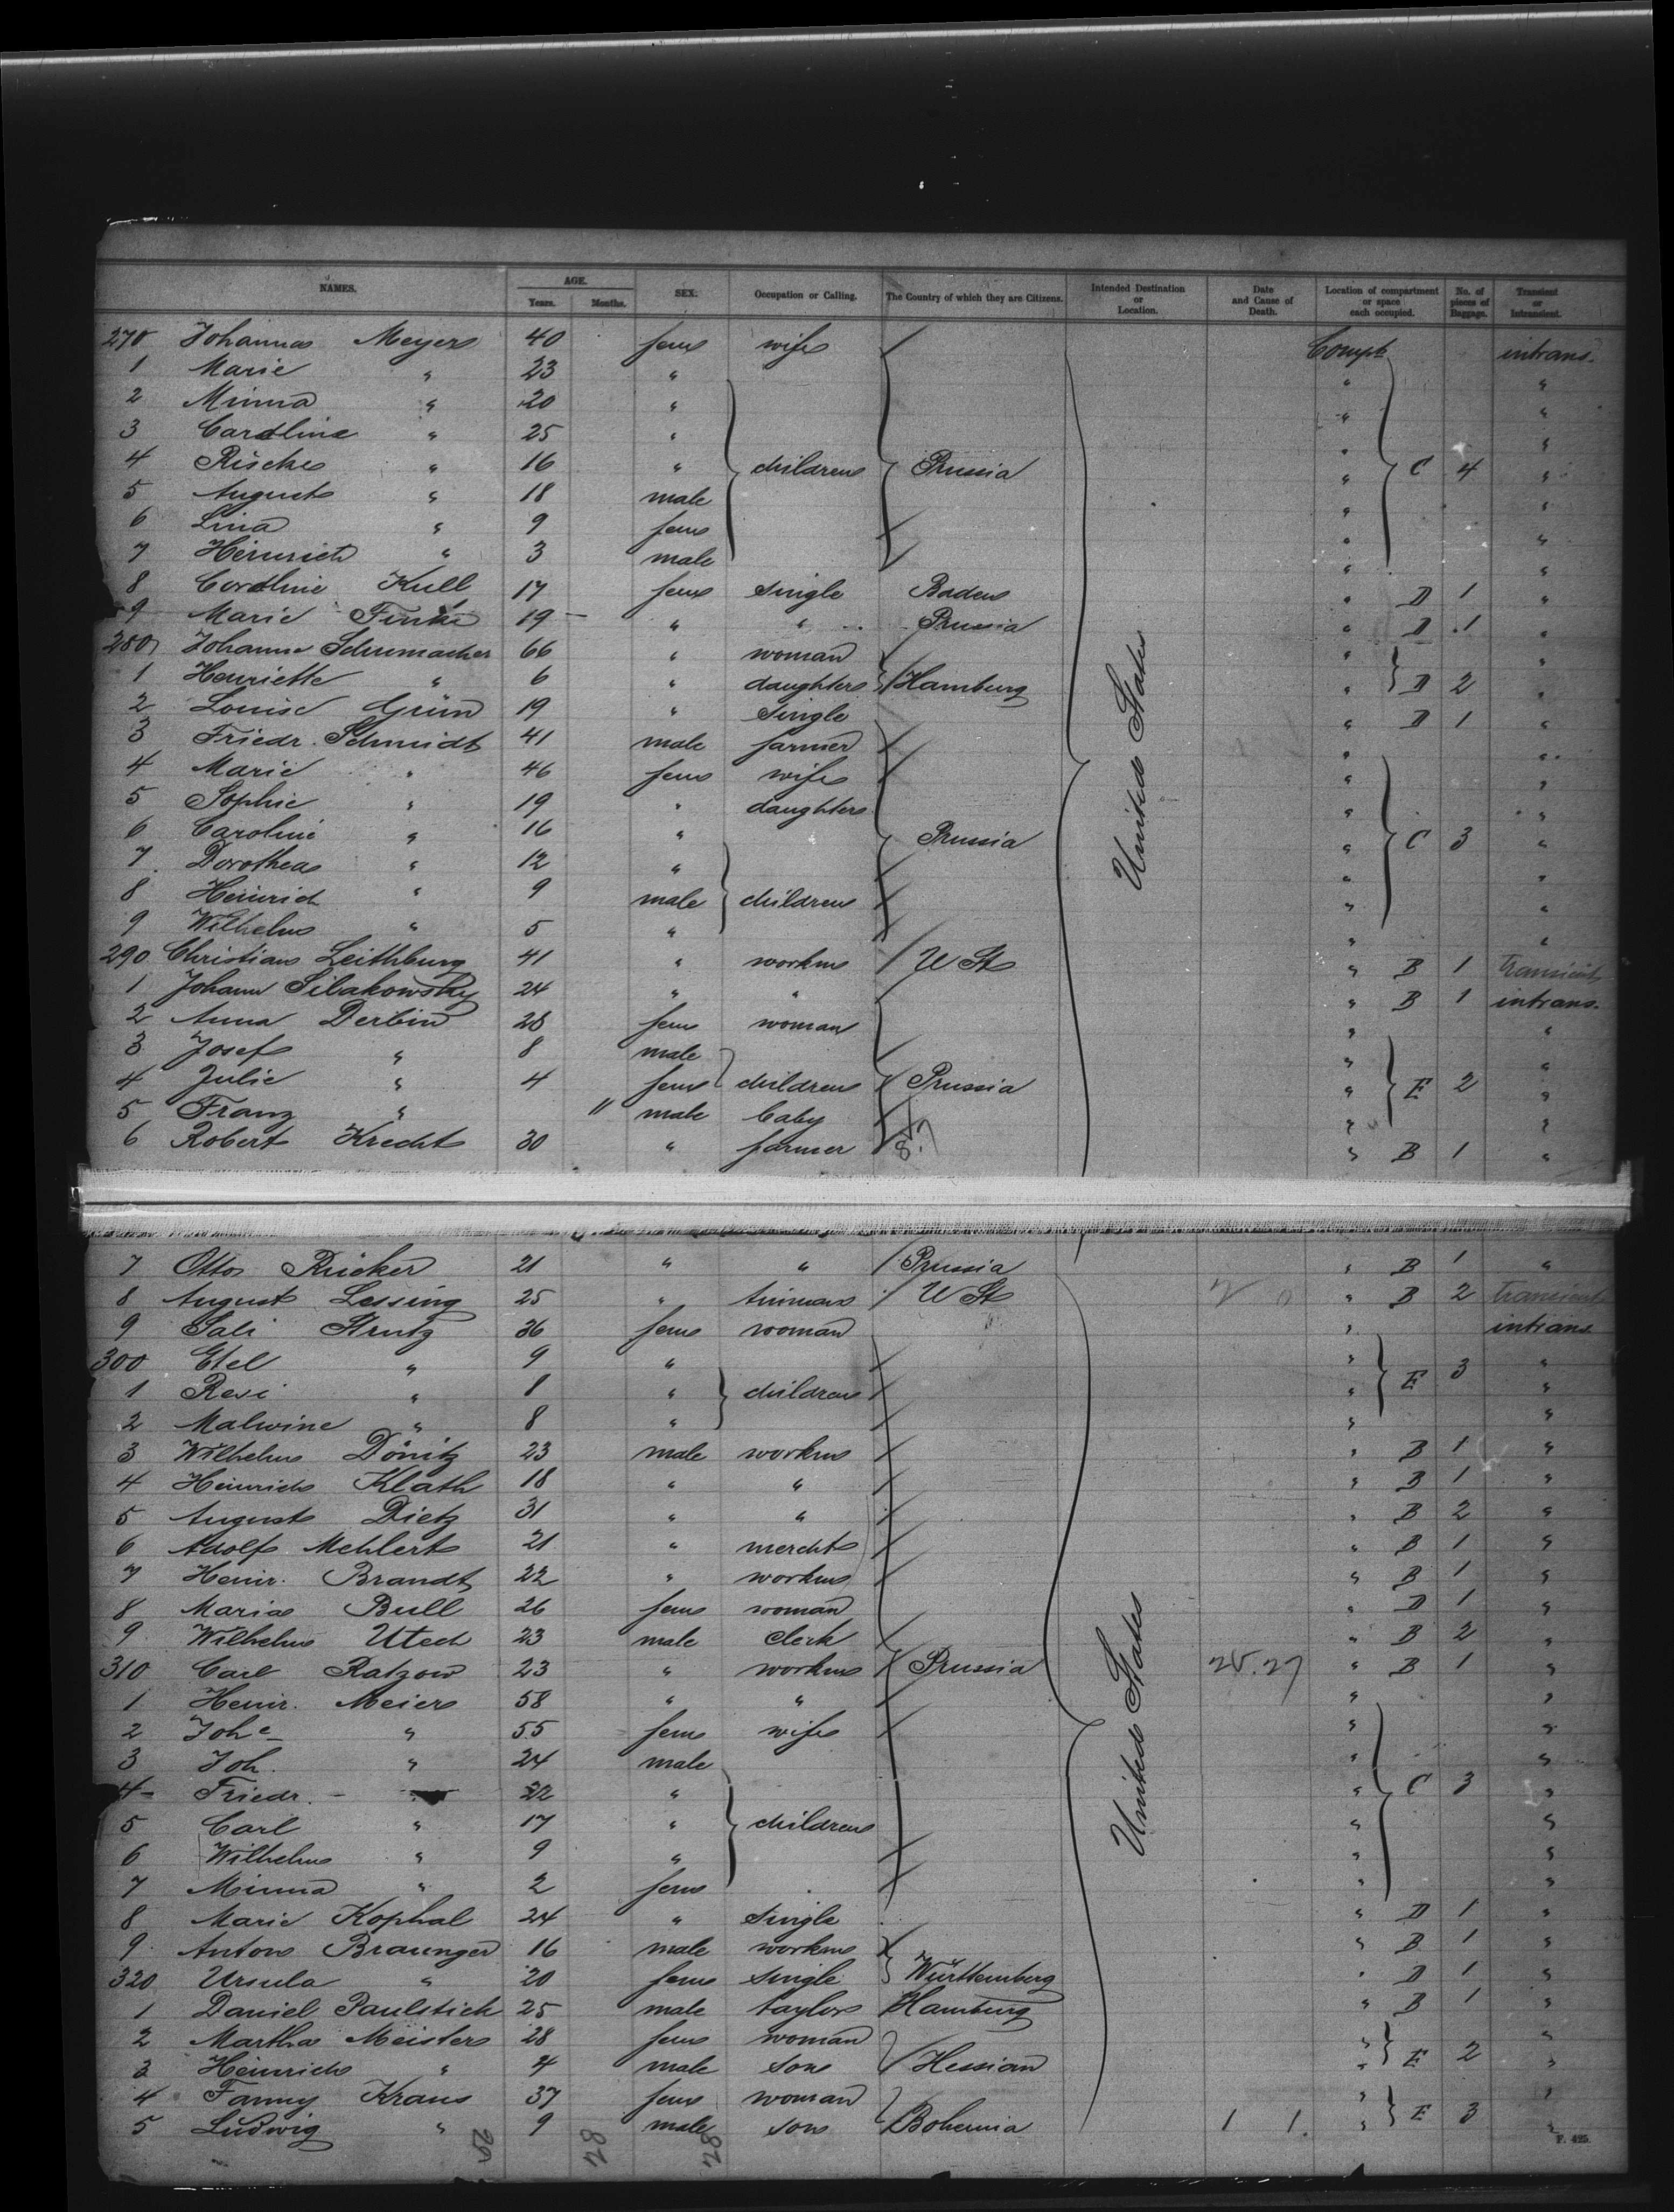 NAMES. AGE. Years. Months. SEX. Occupation or Calling. The Country of which they are Citizens. Intended Destination or Location. Date and Cause of Death. Location of compartment or space each occupied. No. of pieces of Baggage. Transient or Intransient.
270 Johanna Meyer 40 fem wife Compt intrans.
1 Marie " 23 " " "
2 Minna " 20 " " "
3 Caroline " 25 " " "
4 Rieke " 16 " children Prussia " C 4 "
5 August " 18 male " "
6 Lina " 9 fem " "
7 Heinrich " 3 male " "
8 Caroline Kull 17 fem single Baden " D 1 "
9 Marie Finke 19 " " Prussia " D 1 "
280 Johanna Schumacher 66 " woman " "
1 Henriette " 6 " daughter Hamburg " D 2 "
2 Louise Grün 19 " single " D 1 "
3 Friedr. Schmidt 41 male farmer " "
4 Marie " 46 fem wife " "
5 Sophie " 19 " daughter " "
6 Caroline " 16 " Prussia " C 3 "
7 Dorothea " 12 " " "
8 Heinrich " 9 male children " "
9 Wilhelm " 5 " " "
290 Christian Leithburg 41 " workm U St " B 1 transient
1 Johann Silakowsky 24 " " " B 1 intrans.
2 Anna Derbin 28 fem woman " "
3 Josef " 8 male " "
4 Julie " 4 fem children Prussia " E 2 "
5 Franz " 11 male baby " "
6 Robert Krecht 30 " farmer " B 1 "
United States
7 Otto Rücker 21 " " Prussia " B 1 "
8 August Lessing 25 " tinman U St " B 2 transient
9 Sali Strutz 36 fem woman " intrans
300 Etel " 9 " " E 3 "
1 Resi " 8 " children " "
2 Malwine " 8 " " "
3 Wilhelm Dönitz 23 male workm " B 1 "
4 Heinrich Klath 18 " " " B 1 "
5 August Dietz 31 " " " B 2 "
6 Adolf Mehlert 21 " mercht " B 1 "
7 Heinr. Brandt 22 " workm " B 1 "
8 Maria Bull 26 fem woman " D 1 "
9 Wilhelm Utech 23 male clerk " B 2 "
310 Carl Ratzow 23 " workm Prussia " B 1 "
1 Heinr. Meier 58 " " " "
2 Johe " 55 fem wife " "
3 Joh. " 24 male " "
4 Friedr. " 22 " " C 3 "
5 Carl " 17 " children " "
6 Wilhelm " 9 " " "
7 Minna " 2 fem " "
8 Marie Kophal 24 " single " D 1 "
9 Anton Braunger 16 male workm " B 1 "
320 Ursula " 20 fem single Württemberg " D 1 "
1 Daniel Paulstich 25 male taylor Hamburg " B 1 "
2 Martha Meister 28 fem woman " "
3 Heinrich " 4 male son Hessian " E 2 "
4 Fanny Kraus 37 fem woman " "
5 Ludwig " 9 male son Bohemia 1 1. " E 3 "
United States
F. 425.